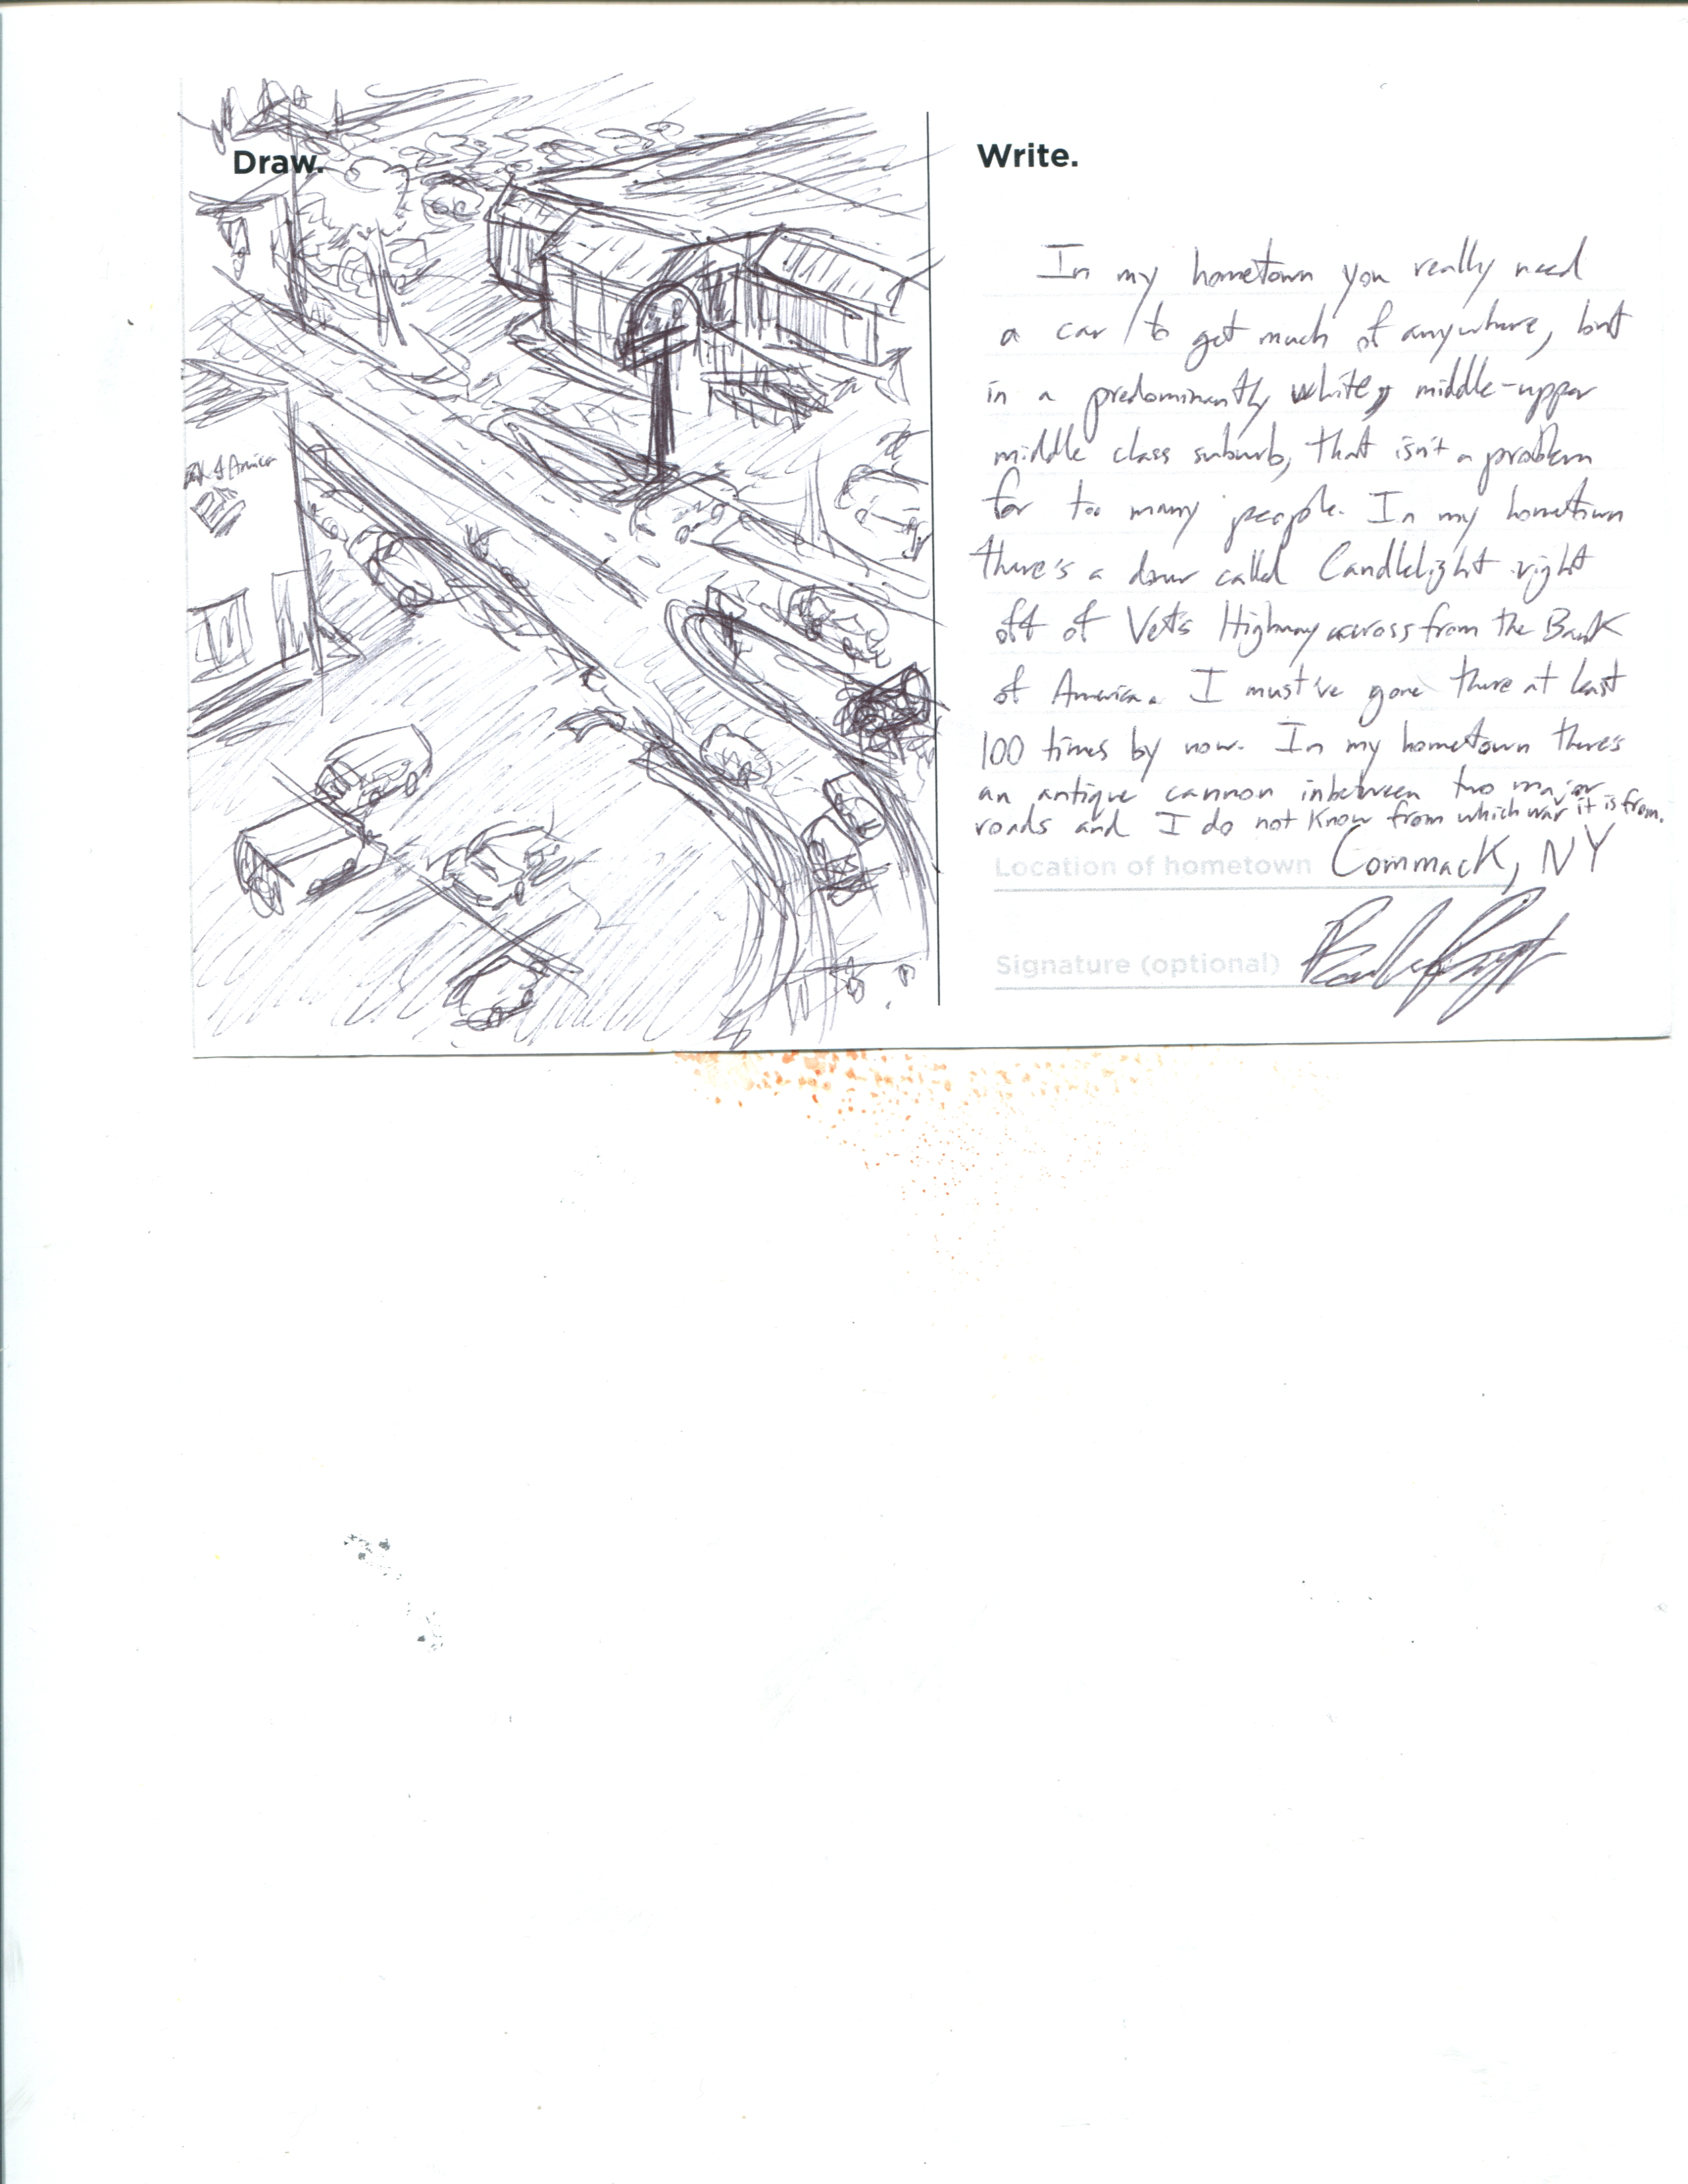 Draw.
Bank of America
Write.
In my hometown you really need
a car to get much of anywhere, but
in a predominantly white, middle-upper
middle class suburb, that isn't a problem
for too many people. In my hometown
there's a diner called Candlelight right
off of Vet's Highway across from the Bank
of America. I must've gone there at least
100 times by now. In my hometown there's
an antique cannon inbetween two major
roads and I do not know from which war it is from.
Location of hometown Commack, NY
Signature (optional)